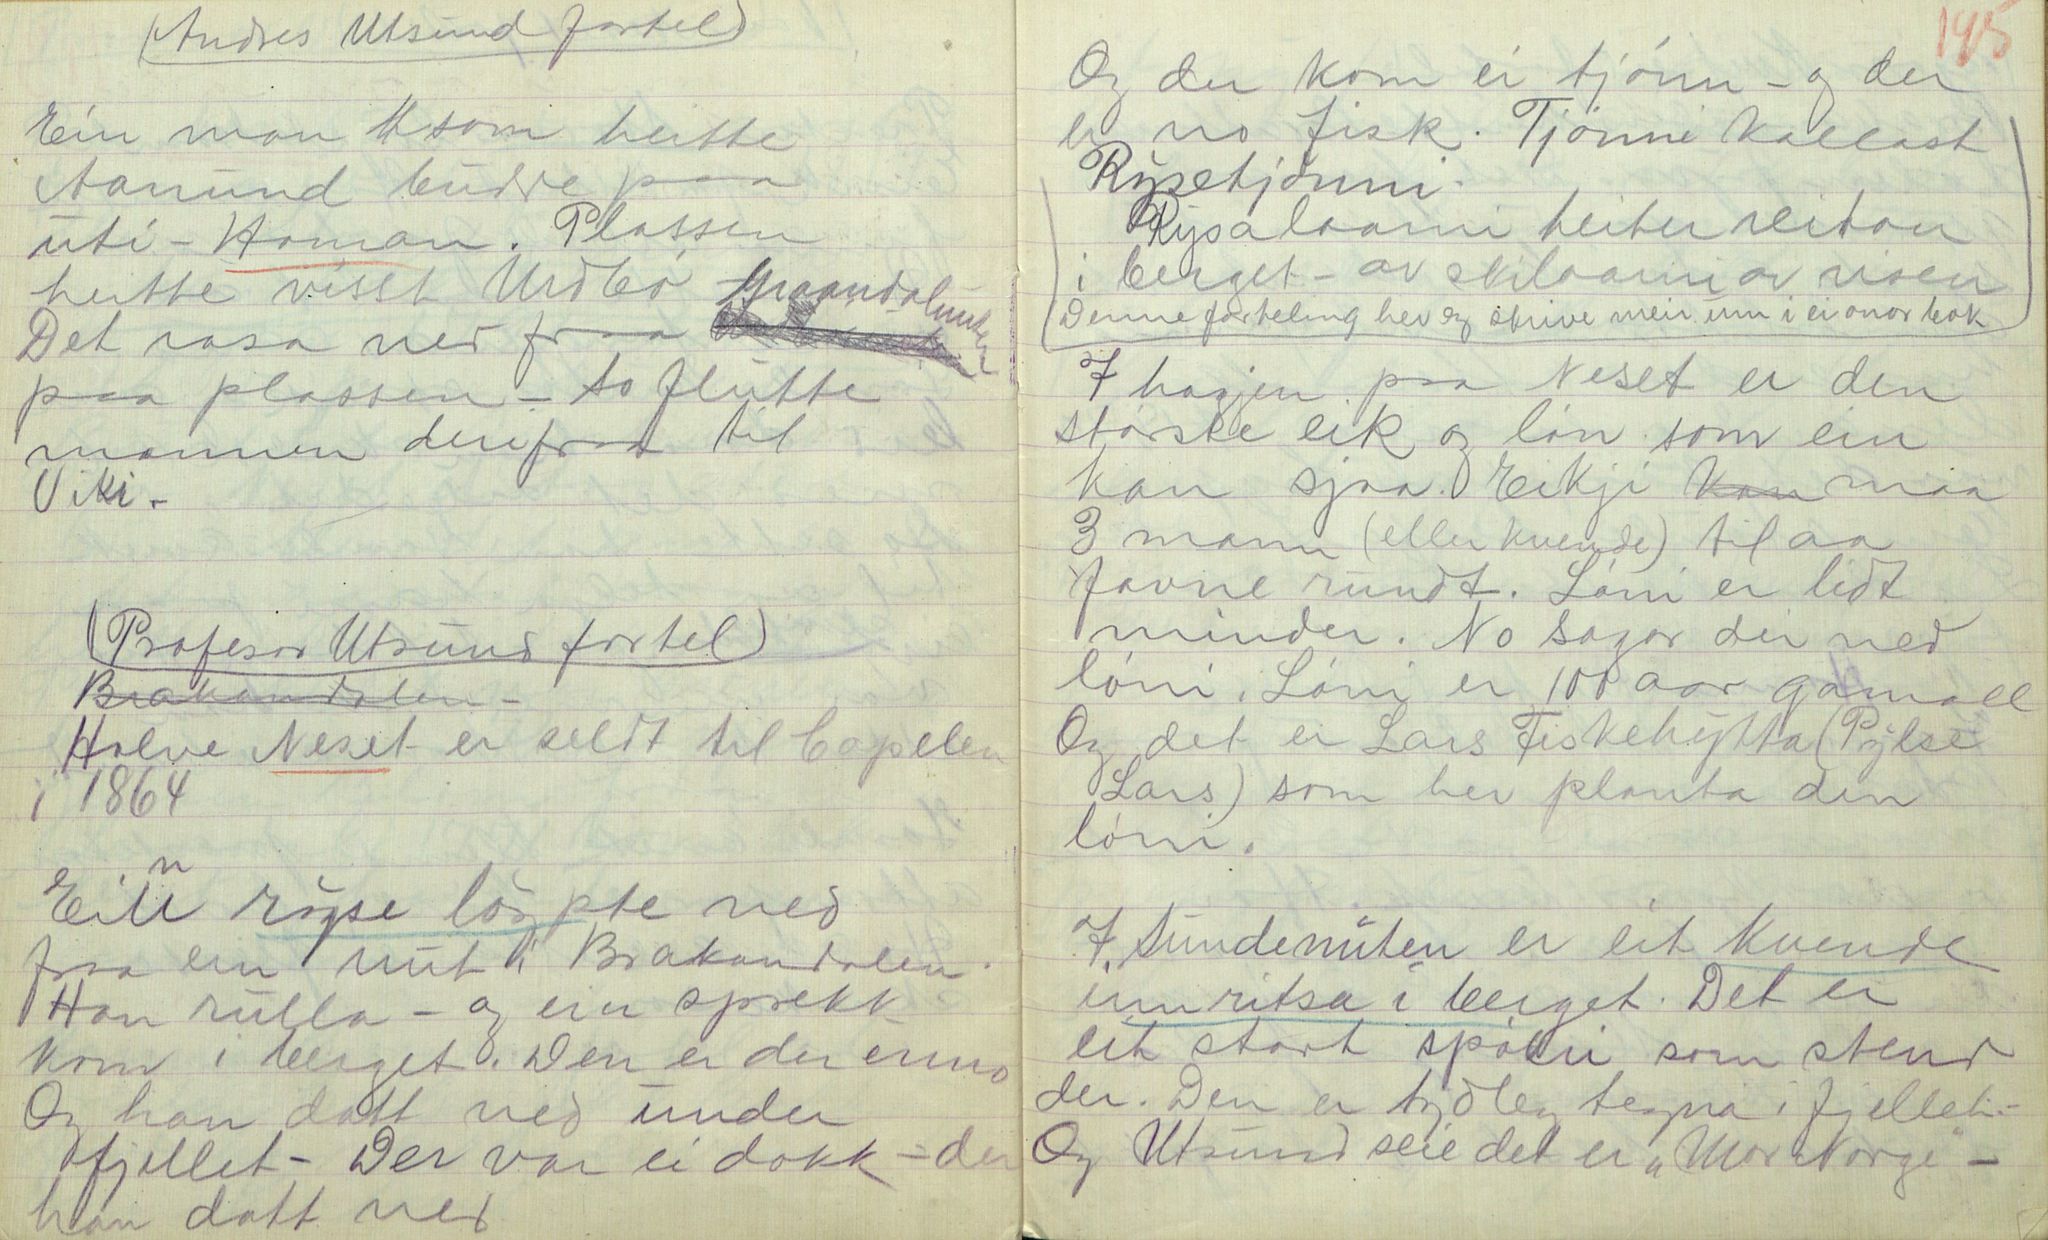 (Andres Utsund fortel)
Ein man som heitte
Aanund budde paa
uti-Haman. Plassen
heitte visst Urdbö
Det rasa ned fraa Graandalnuten
paa plassen - so flutte
mannen derifraa til
Viki -
(Profesor Utsund fortel)
Brakandalen -
Halve Neset er seldt til Capelen
i 1864
Ein röyse löypte ned
fraa ein nut i Brakandalen.
Han rulla - og ein sprekk
kom i berget. Den er der enno
Og han datt ned under
fjellet - Der var ei dokk - der
han datt ned
145
Og der kom ei tjönn - og der
er no fisk. Tjönni kallast
Rysetjönni.
Rysalaarni heiter reiton
i berget - av skilaarni av risen
Denne forteling hev eg skrive meir um i ei onor bok
I hagjen paa Neset er den
störske eik og lön som ein
kan sjaa. Eikji kan maa
3 mann (eller kvende) til aa
favne rundt. Löni er lidt
minder. No sagar dei ned
löni. Löni er 100 aar gamall
Og det er Lars Fiskehytta (Pylse
Lars) som hev planta den
löni.
I Sundenuten er eit kvende
innritsa i berget. Det er
eit stort spökri som stend
der. Den er tydleg tegna i fjellet -
Og Utsund seie det er "Mor Norge" -